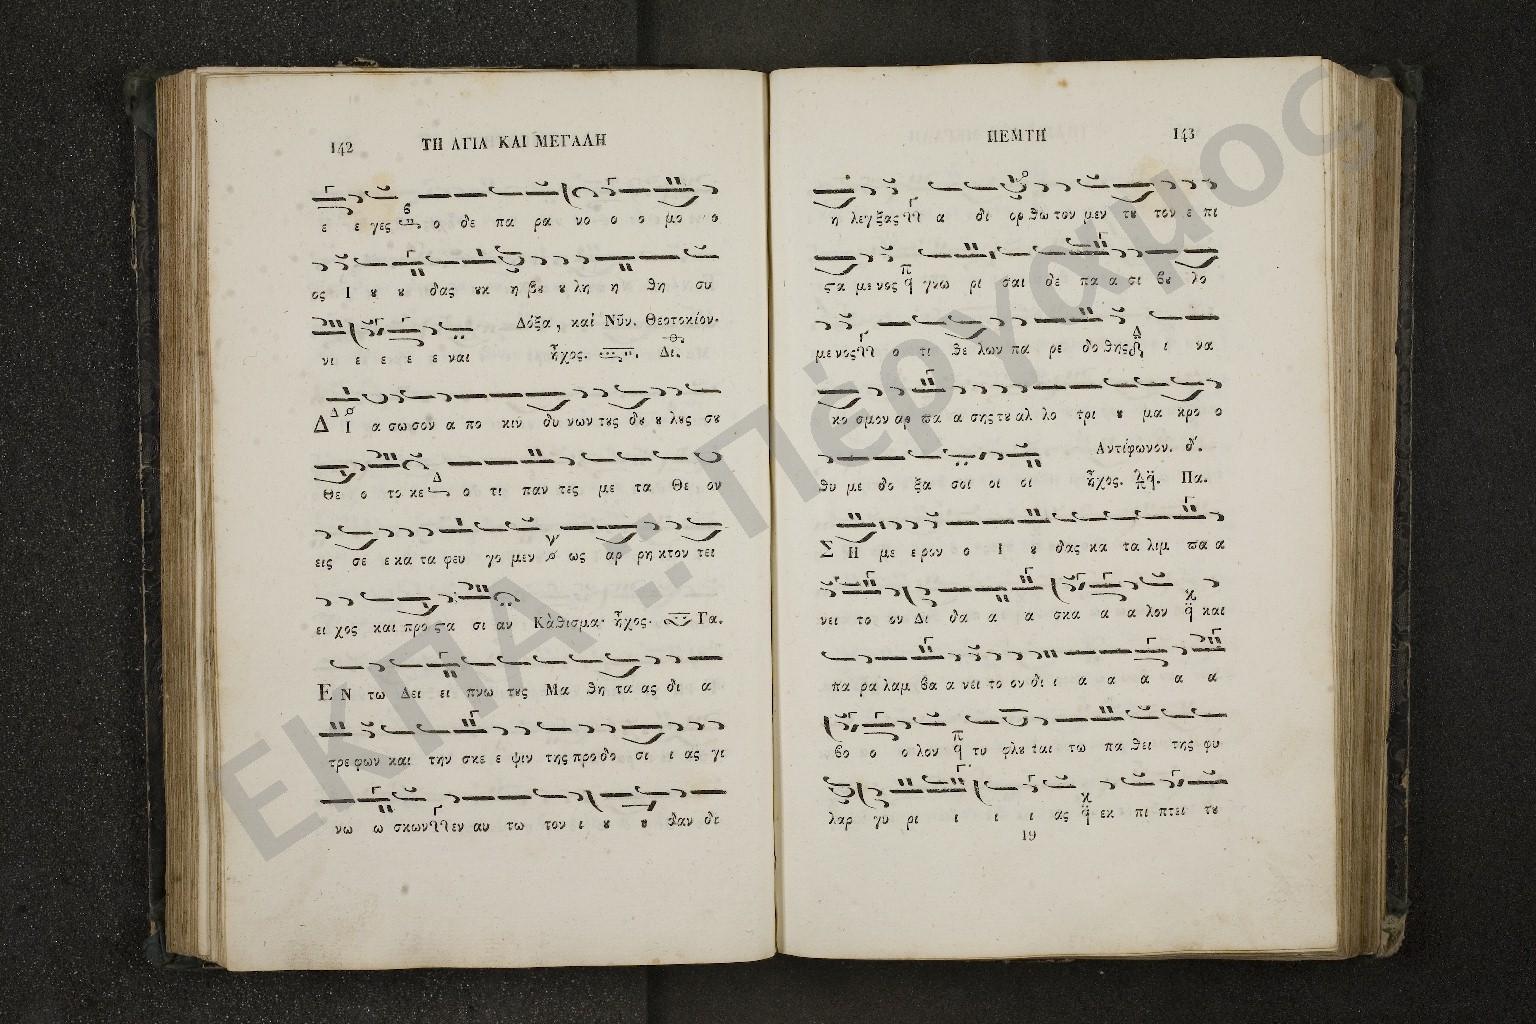 142 ΤΗ ΑΓΙΑ ΚΑΙ ΜΕΓΑΛΗ
ε ε γες ο δε πα ρα νο ο ο μο ο
ος Ι ου ου δας ουκ η βου ου λη η θη συ
Δόξα, καὶ Νῦν. Θεοτοκίον.
νι ε ε ε ε ναι ἦχος. Δι.
ΔΙ α σω σον α πο κιν δυ νων τους δου ου λους σου
Θε ο το κε ο τι παν τες με τα Θε ον
εις σε ε κα τα φευ γο μεν ως αρ ρη κτον τει
ει χος και προ ϛα σι αν Κάθισμα· ἦχος· Γα.
ΕΝ τω Δει ει πνω τους Μα θη τα ας δι α
τρε φων και την σκε ε ψιν της προ δο σι ι ας γι
νω ω σκων εν αυ τω τον ι ου ου δαν δι
ΠΕΜΤΗ 143
η λεγ ξας α δι ορ θω τον μεν του τον ε πι
ϛα με νος γνω ρι σαι δε πα α σι βου λο
με νος ο τι θε λων πα ρε δο θης ι να
κο σμον αρ πα α σης του αλ λο τρι ου μα κρο ο
Αντίφωνον. δ΄.
θυ με δο ξα σοι οι οι ἦχος. Πα.
ΣΗ με ε ρον ο Ι ου δας κα τα λιμ πα α
νει το ον Δι δα α α σκα α α λον και
πα ρα λαμ βα α νει το ον δι ι α α α α α
βο ο ο λον τυ φλου ται τω πα θει της φι
λαρ γυ ρι ι ι ι ας εκ πι πτει του
19
ΕΚΠΑ :: Πέργαμος